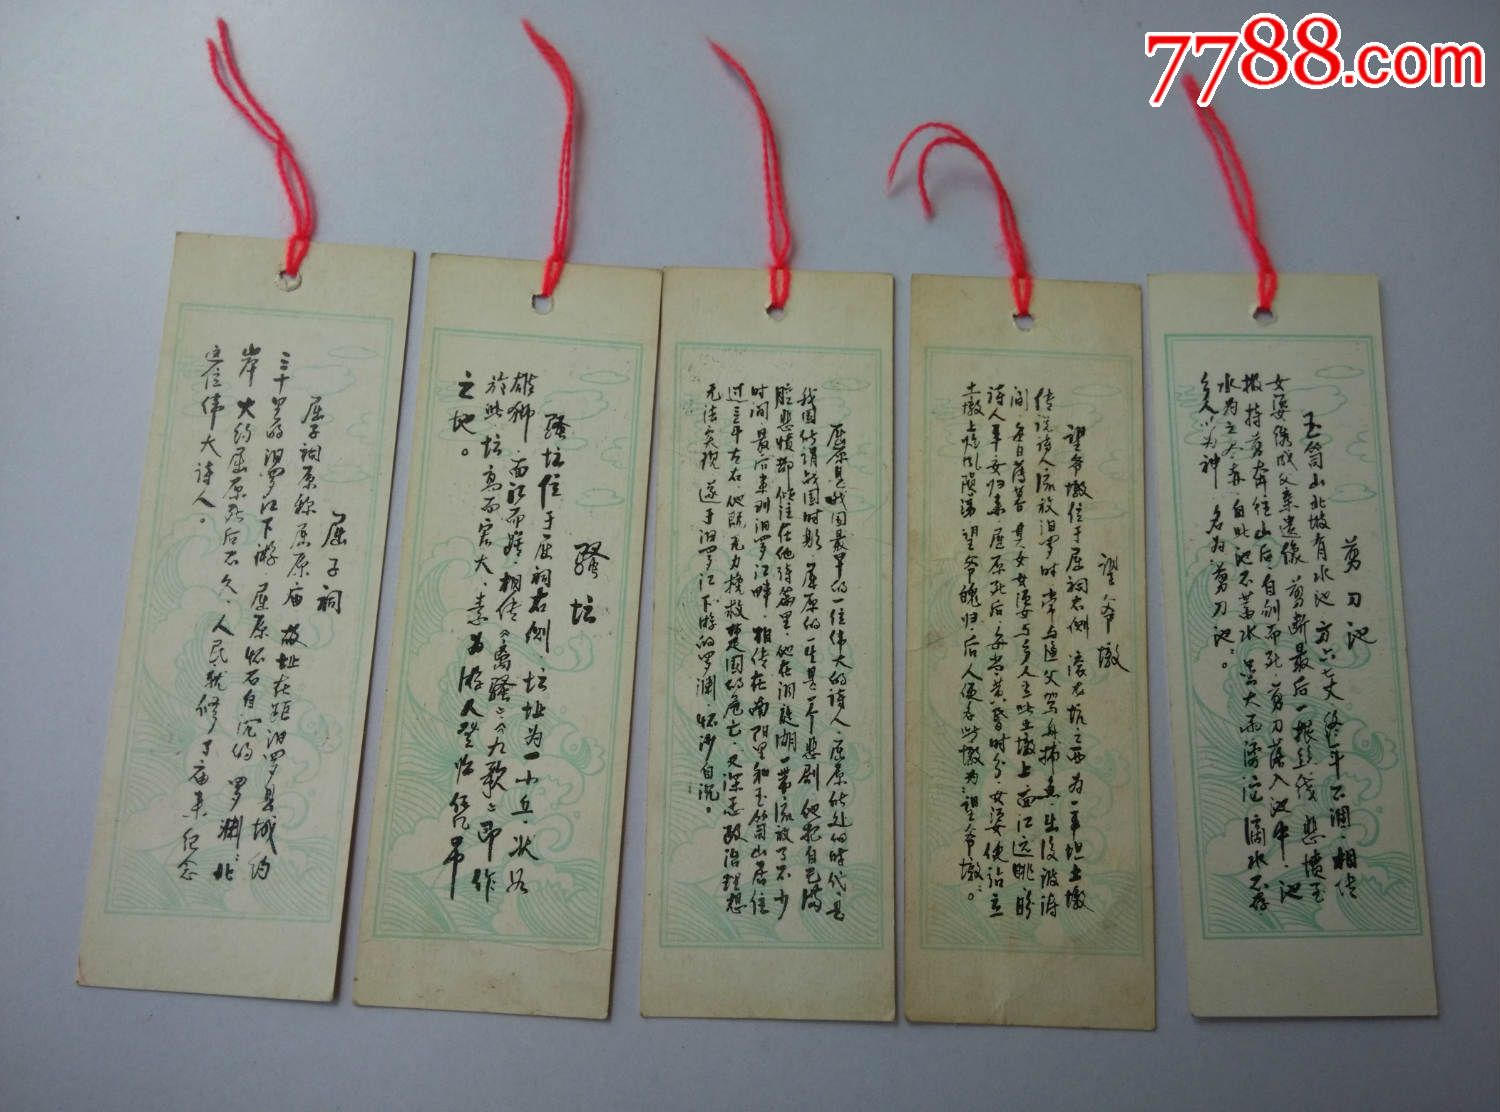 7788.com
屈子祠
屈子祠原称屈原庙 故址在距汨罗县城约
三十公前汨罗江下游 屈原怀石自沉的罗渊北
岸 大约屈原死后不久，人民就修了庙来纪念
这位伟大诗人。
骚坛
骚坛位于屈祠右侧 坛址为一小丘，状如
雄狮 面江而蹲，相传《离骚》《九歌》即作
於此，坛高而宏大，素为游人登临凭吊
之地。
屈原是我国最早的一位伟大的诗人，屈原所处的时代，是
我国所谓战国时期，屈原的一生是一个悲剧 他把自己满
腔悲愤都倾注在他诗篇里，他在洞庭湖一带流放了不少
时间 最后来到汨罗江畔，相传在南阳里和玉笥山居住
过三年左右 他既无力挽救楚国的危亡，又深感政治理想
无法实现 遂于汨罗江下游的罗渊 怀沙自沉。
望爷墩
望爷墩位于屈祠右侧 濠右坑之西为一平坦土墩
传说诗人流放汨罗时，常与渔父驾舟捕鱼，生活波涛
间 每日薄暮 其女女嬃与乡人立此土墩上面江远眺盼
诗人平安归来 屈原死后，每当黄昏时分，女嬃便站立
土墩上临风陨涕望爷魄归，后人便名此墩为“望爷墩”。
剪刀池
玉笥山北坡有水池 方六七丈 终年不涸 相传
女嬃绣成父亲遗像 剪断最后一根丝线 悲愤至
极 持剪奔往山后，自刎而死，剪刀落入池中，池
水为之尽赤，自此池不蓄水，虽大雨滂沱滴水不存
乡人以为神 名为“剪刀池”。